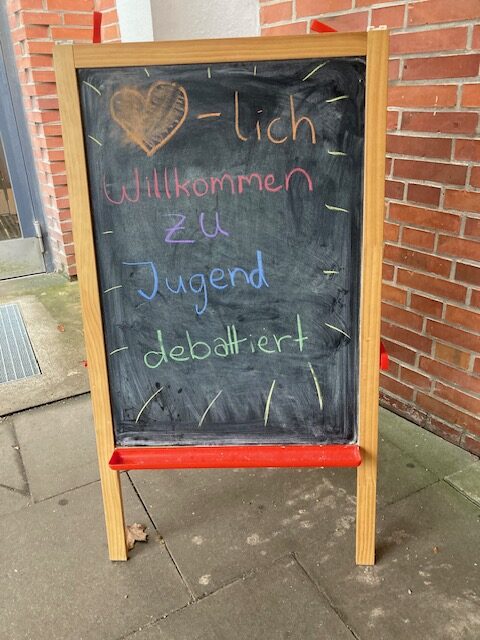 ♥-lich
Willkommen
zu
Jugend
debattiert